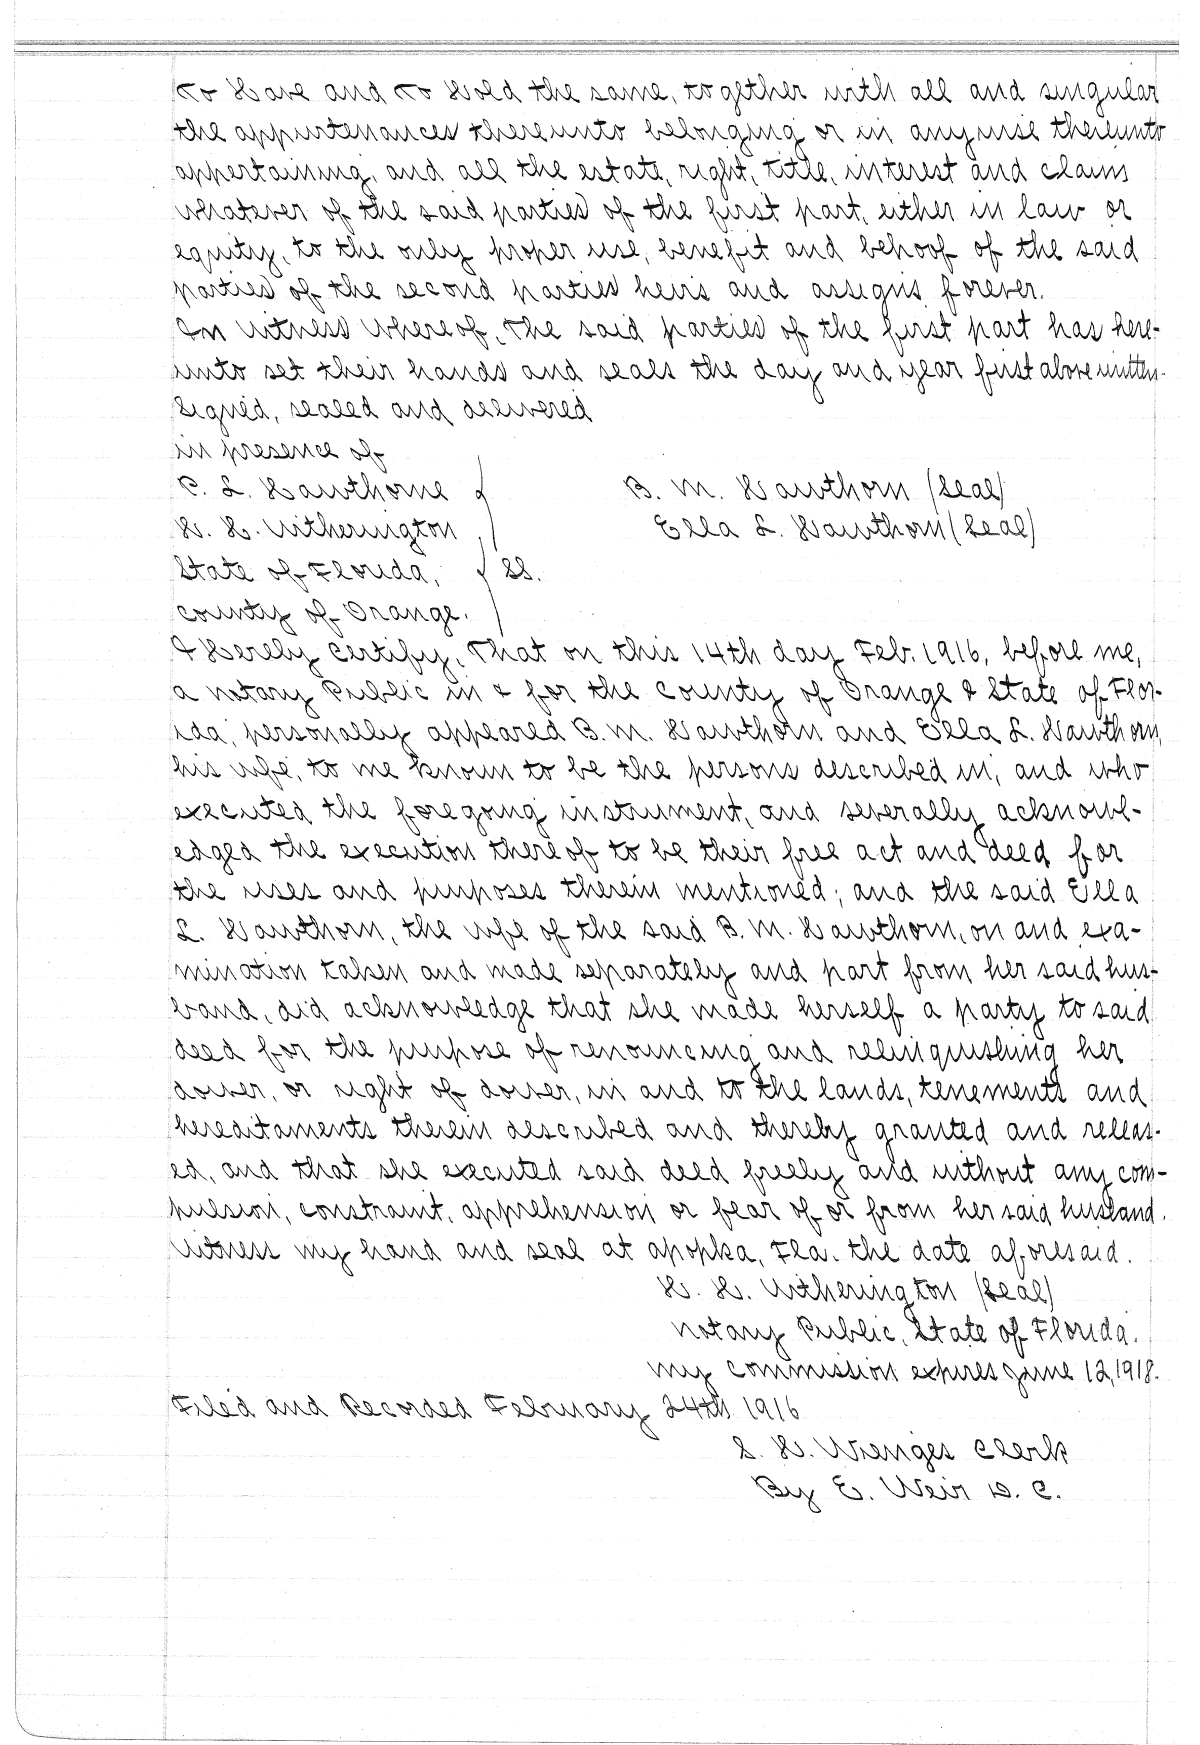 To Have and to Hold the same, together with all and singular
the appurtenances thereunto belonging or in anywise thereunto
appertaining, and all the estate, right, title, interest and claim
whatever of the said parties of the first part, either in law or
equity, to the only proper use, benefit and behoof of the said
parties of the second parties heirs and assigns forever.
In Witness Whereof, The said parties of the first part has here-
unto set their hands and seals the day and year first above written.
Signed, sealed and delivered
in presence of
C. L. Hawthorne
B. M. Hawthorn (Seal)
H. H. Witherington
Ella L. Hawthorn (Seal)
State of Florida, SS.
county of Orange.
I Hereby Certify, That on this 14th day Feb. 1916, before me,
a notary Public in & for the county of Orange & State of Flor-
ida, personally appeared B. M. Hawthorn and Ella L. Hawthorn,
his wife, to me known to be the persons described in, and who
executed the foregoing instrument, and severally acknowl-
edged the execution thereof to be their free act and deed for
the uses and purposes therein mentioned; and the said Ella
L. Hawthorn, the wife of the said B. M. Hawthorn, on and exa-
mination taken and made separately and part from her said hus-
band, did acknowledge that she made herself a party to said
deed for the purpose of renouncing and relinquishing her
dower, or right of dower, in and to the lands, tenements and
hereditaments therein described and thereby granted and releas-
ed, and that she executed said deed freely and without any com-
pulsion, constraint, apprehension or fear of or from her said husband.
Witness my hand and seal at apopka, Fla. the date aforesaid.
H. H. Witherington (Seal)
notary Public, State of Florida.
my commission expires June 12, 1918.
Filed and Recorded February 24th 1916
B. M. Clerk
By E. Weir D. C.